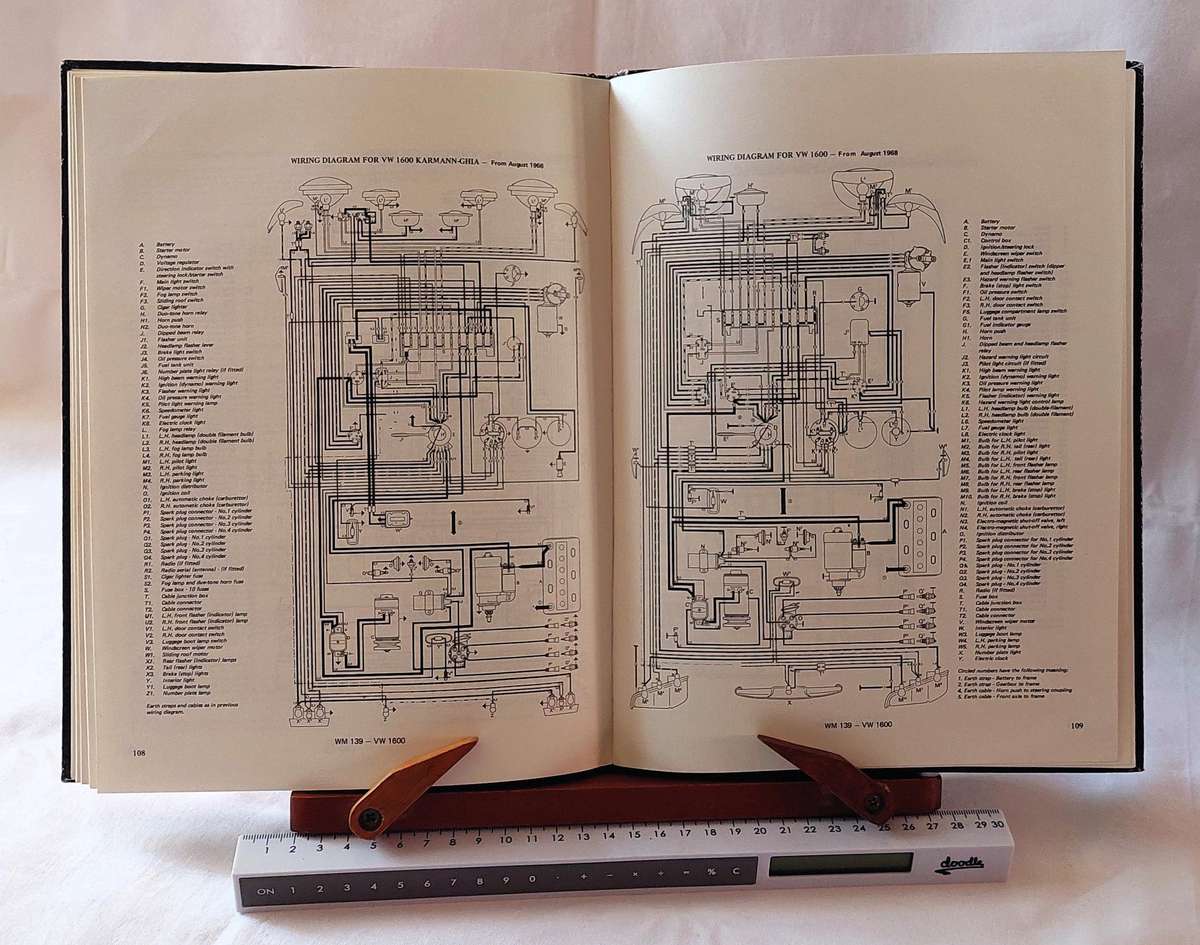 WIRING DIAGRAM FOR VW 1600 KARMANN-GHIA — From August 1968
A. Battery
B. Starter motor
C. Dynamo
D. Voltage regulator
E. Direction indicator switch with
steering lock/starter switch
F. Main light switch
F1. Wiper motor switch
F2. Fog lamp switch
F3. Sliding roof switch
G. Cigar lighter
H. Duo-tone horn relay
H1. Horn push
H2. Duo-tone horn
J. Dipped beam relay
J1. Flasher unit
J2. Headlamp flasher lever
J3. Brake light switch
J4. Oil pressure switch
J5. Fuel tank unit
J6. Number plate light relay (if fitted)
K1. High beam warning light
K2. Ignition (dynamo) warning light
K3. Flasher warning light
K4. Oil pressure warning light
K5. Pilot light warning lamp
K6. Speedometer light
K7. Fuel gauge light
K8. Electric clock light
L. Fog lamp relay
L1. L.H. headlamp (double filament bulb)
L2. R.H. headlamp (double filament bulb)
L3. L.H. fog lamp bulb
L4. R.H. fog lamp bulb
M1. L.H. pilot light
M2. R.H. pilot light
M3. L.H. parking light
M4. R.H. parking light
N. Ignition distributor
O. Ignition coil
O1. L.H. automatic choke (carburettor)
O2. R.H. automatic choke (carburettor)
P1. Spark plug connector - No.1 cylinder
P2. Spark plug connector - No.2 cylinder
P3. Spark plug connector - No.3 cylinder
P4. Spark plug connector - No.4 cylinder
Q1. Spark plug - No.1 cylinder
Q2. Spark plug - No.2 cylinder
Q3. Spark plug - No.3 cylinder
Q4. Spark plug - No.4 cylinder
R1. Radio (if fitted)
R2. Radio aerial (antenna) - (if fitted)
S1. Cigar lighter fuse
S2. Fog lamp and duo-tone horn fuse
S. Fuse box - 10 fuses
T. Cable junction box
T1. Cable connector
T2. Cable connector
U1. L.H. front flasher (indicator) lamp
U2. R.H. front flasher (indicator) lamp
V1. L.H. door contact switch
V2. R.H. door contact switch
V3. Luggage boot lamp switch
W. Windscreen wiper motor
W1. Sliding roof motor
X1. Rear flasher (indicator) lamps
X2. Tail (rear) lights
X3. Brake (stop) lights
Y. Interior light
Y1. Luggage boot lamp
Z1. Number plate lamp
Earth straps and cables as in previous
wiring diagram.
WM 139 — VW 1600
108
WIRING DIAGRAM FOR VW 1600 — From August 1968
A. Battery
B. Starter motor
C. Dynamo
C1. Control box
D. Ignition/steering lock
E. Windscreen wiper switch
E.1 Main light switch
E2. Flasher (indicator) switch (dipper
and headlamp flasher switch)
E3. Hazard warning flasher switch
F. Brake (stop) light switch
F1. Oil pressure switch
F2. L.H. door contact switch
F3. R.H. door contact switch
F5. Luggage compartment lamp switch
G. Fuel tank unit
G1. Fuel indicator gauge
H. Horn push
H1. Horn
J. Dipped beam and headlamp flasher
relay
J2. Hazard warning light circuit
J3. Pilot light circuit (if fitted)
K1. High beam warning light
K2. Ignition (dynamo) warning light
K3. Oil pressure warning light
K4. Pilot lamp warning light
K5. Flasher (indicator) warning light
K6. Hazard warning light control lamp
L1. L.H. headlamp bulb (double-filament)
L2. R.H. headlamp bulb (double filament)
L6. Speedometer light
L7. Fuel gauge light
L8. Electric clock light
M1. Bulb for L.H. pilot light
M2. Bulb for R.H. tail (rear) light
M3. Bulb for R.H. pilot light
M4. Bulb for L.H. tail (rear) light
M5. Bulb for L.H. front flasher lamp
M6. Bulb for L.H. rear flasher lamp
M7. Bulb for R.H. front flasher lamp
M8. Bulb for R.H. rear flasher lamp
M9. Bulb for L.H. brake (stop) light
M10. Bulb for R.H. brake (stop) light
Ignition coil
N1. L.H. automatic choke (carburettor)
N2. R.H. automatic choke (carburettor)
N3. Electro-magnetic shut-off valve, left
N4. Electro-magnetic shut-off valve, right
O. Ignition distributor
P1. Spark plug connector for No.1 cylinder
P2. Spark plug connector for No.2 cylinder
P3. Spark plug connector for No.3 cylinder
P4. Spark plug connector for No.4 cylinder
Q1. Spark plug - No.1 cylinder
Q2. Spark plug - No.2 cylinder
Q3. Spark plug - No.3 cylinder
Q4. Spark plug - No.4 cylinder
R. Radio (if fitted)
S. Fuse box
T. Cable junction box
T1. Cable connector
T2. Cable connector
V. Windscreen wiper motor
W. Interior light
W3. Luggage boot lamp
W4. L.H. parking lamp
W5. R.H. parking lamp
X. Number plate light
Y. Electric clock
Circled numbers have the following meaning:
1. Earth strap - Battery to frame
2. Earth strap - Gearbox to frame
4. Earth cable - Horn push to steering coupling
5. Earth cable - Front axle to frame
WM 139 — VW 1600
109
1 2 3 4 5 6 7 8 9 10 11 12 13 14 15 16 17 18 19 20 21 22 23 24 25 26 27 28 29 30
ON 1 2 3 4 5 6 7 8 9 0 · + − × ÷ = % C
doodle